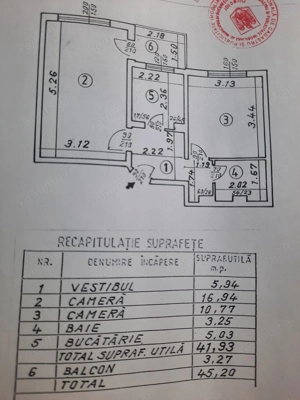 2.18
1.50
6
5.26
2
2.22
5
2.36
3.13
3.44
3
3.12
2.22
1.97
1
1.19
1.74
4
1.67
2.02
RECAPITULAȚIE SUPRAFEȚE
NR. DENUMIRE ÎNCĂPERE SUPR.UTILĂ m.p.
1 VESTIBUL 5,94
2 CAMERĂ 16,94
3 CAMERĂ 10,77
4 BAIE 3,25
5 BUCĂTĂRIE 5,03
TOTAL SUPRAF. UTILĂ 41,93
6 BALCON 3,27
TOTAL 45,20